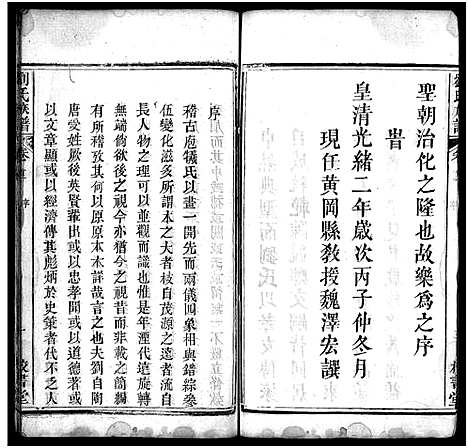 聖朝治化之隆也故樂為之序
旹
皇清光緒二年歲次丙子仲冬月
現任黃岡縣教授魏澤宏譔
序
稽古庖犧氏畫一開先而兩儀四象相與錯綜參
伍變化滋多所謂本之大者枝自茂源之遠者流自
長人物之理可以並觀而識也惟是年湮代遠旋轉
無端倘欲後之視今亦猶今之視昔而非載之簡編
將何以原原本本詳哉言之也夫劉自陶
唐受姓厥後英賢輩出或以忠孝聞或以道德著或
以文章顯或以經濟傳其彪炳於史策者代不乏人
劉氏族譜
卷首
序
一
校書堂